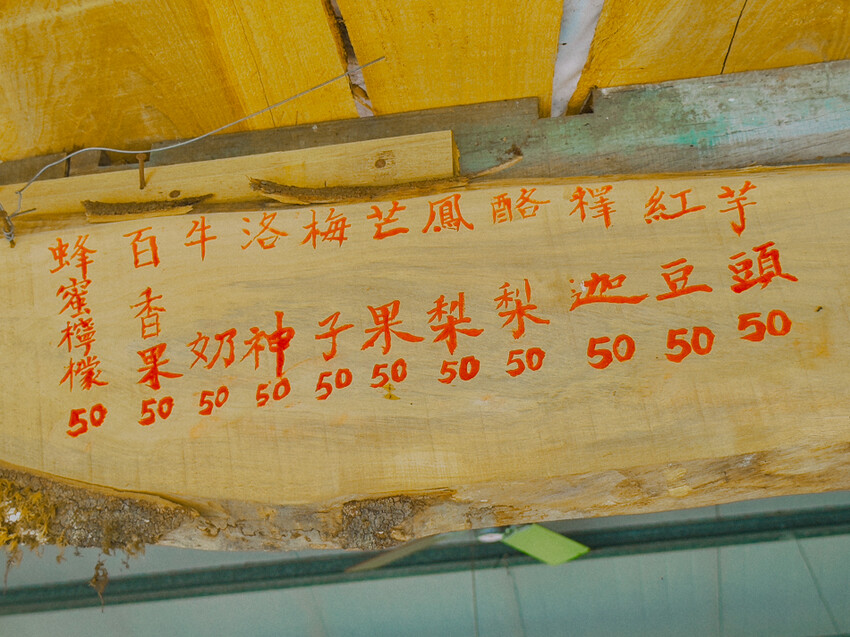 芋頭50
紅豆50
釋迦50
酪梨50
鳳梨50
芒果50
梅子50
洛神50
牛奶50
百香果50
蜂蜜檸檬50